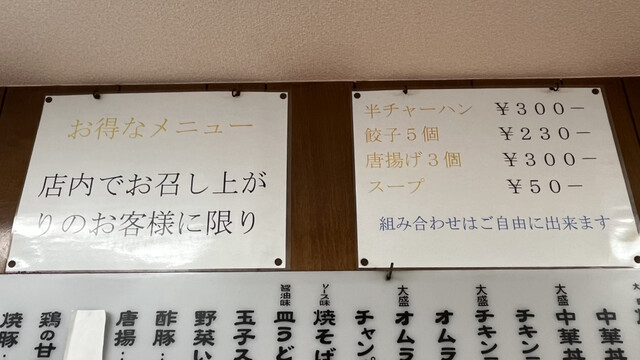 お得なメニュー
店内でお召し上が
りのお客様に限り
半チャーハン ￥３００－
餃子５個 ￥２３０－
唐揚げ３個 ￥３００－
スープ ￥５０－
組み合わせはご自由に出来ます
中華丼
大盛 中華丼
チキン
大盛 チキン
オムラ
大盛 オムラ
チャン
ソース味 焼そば
醤油味 皿うど
玉子ス
野菜い
酢豚
唐揚
鶏の甘
焼豚